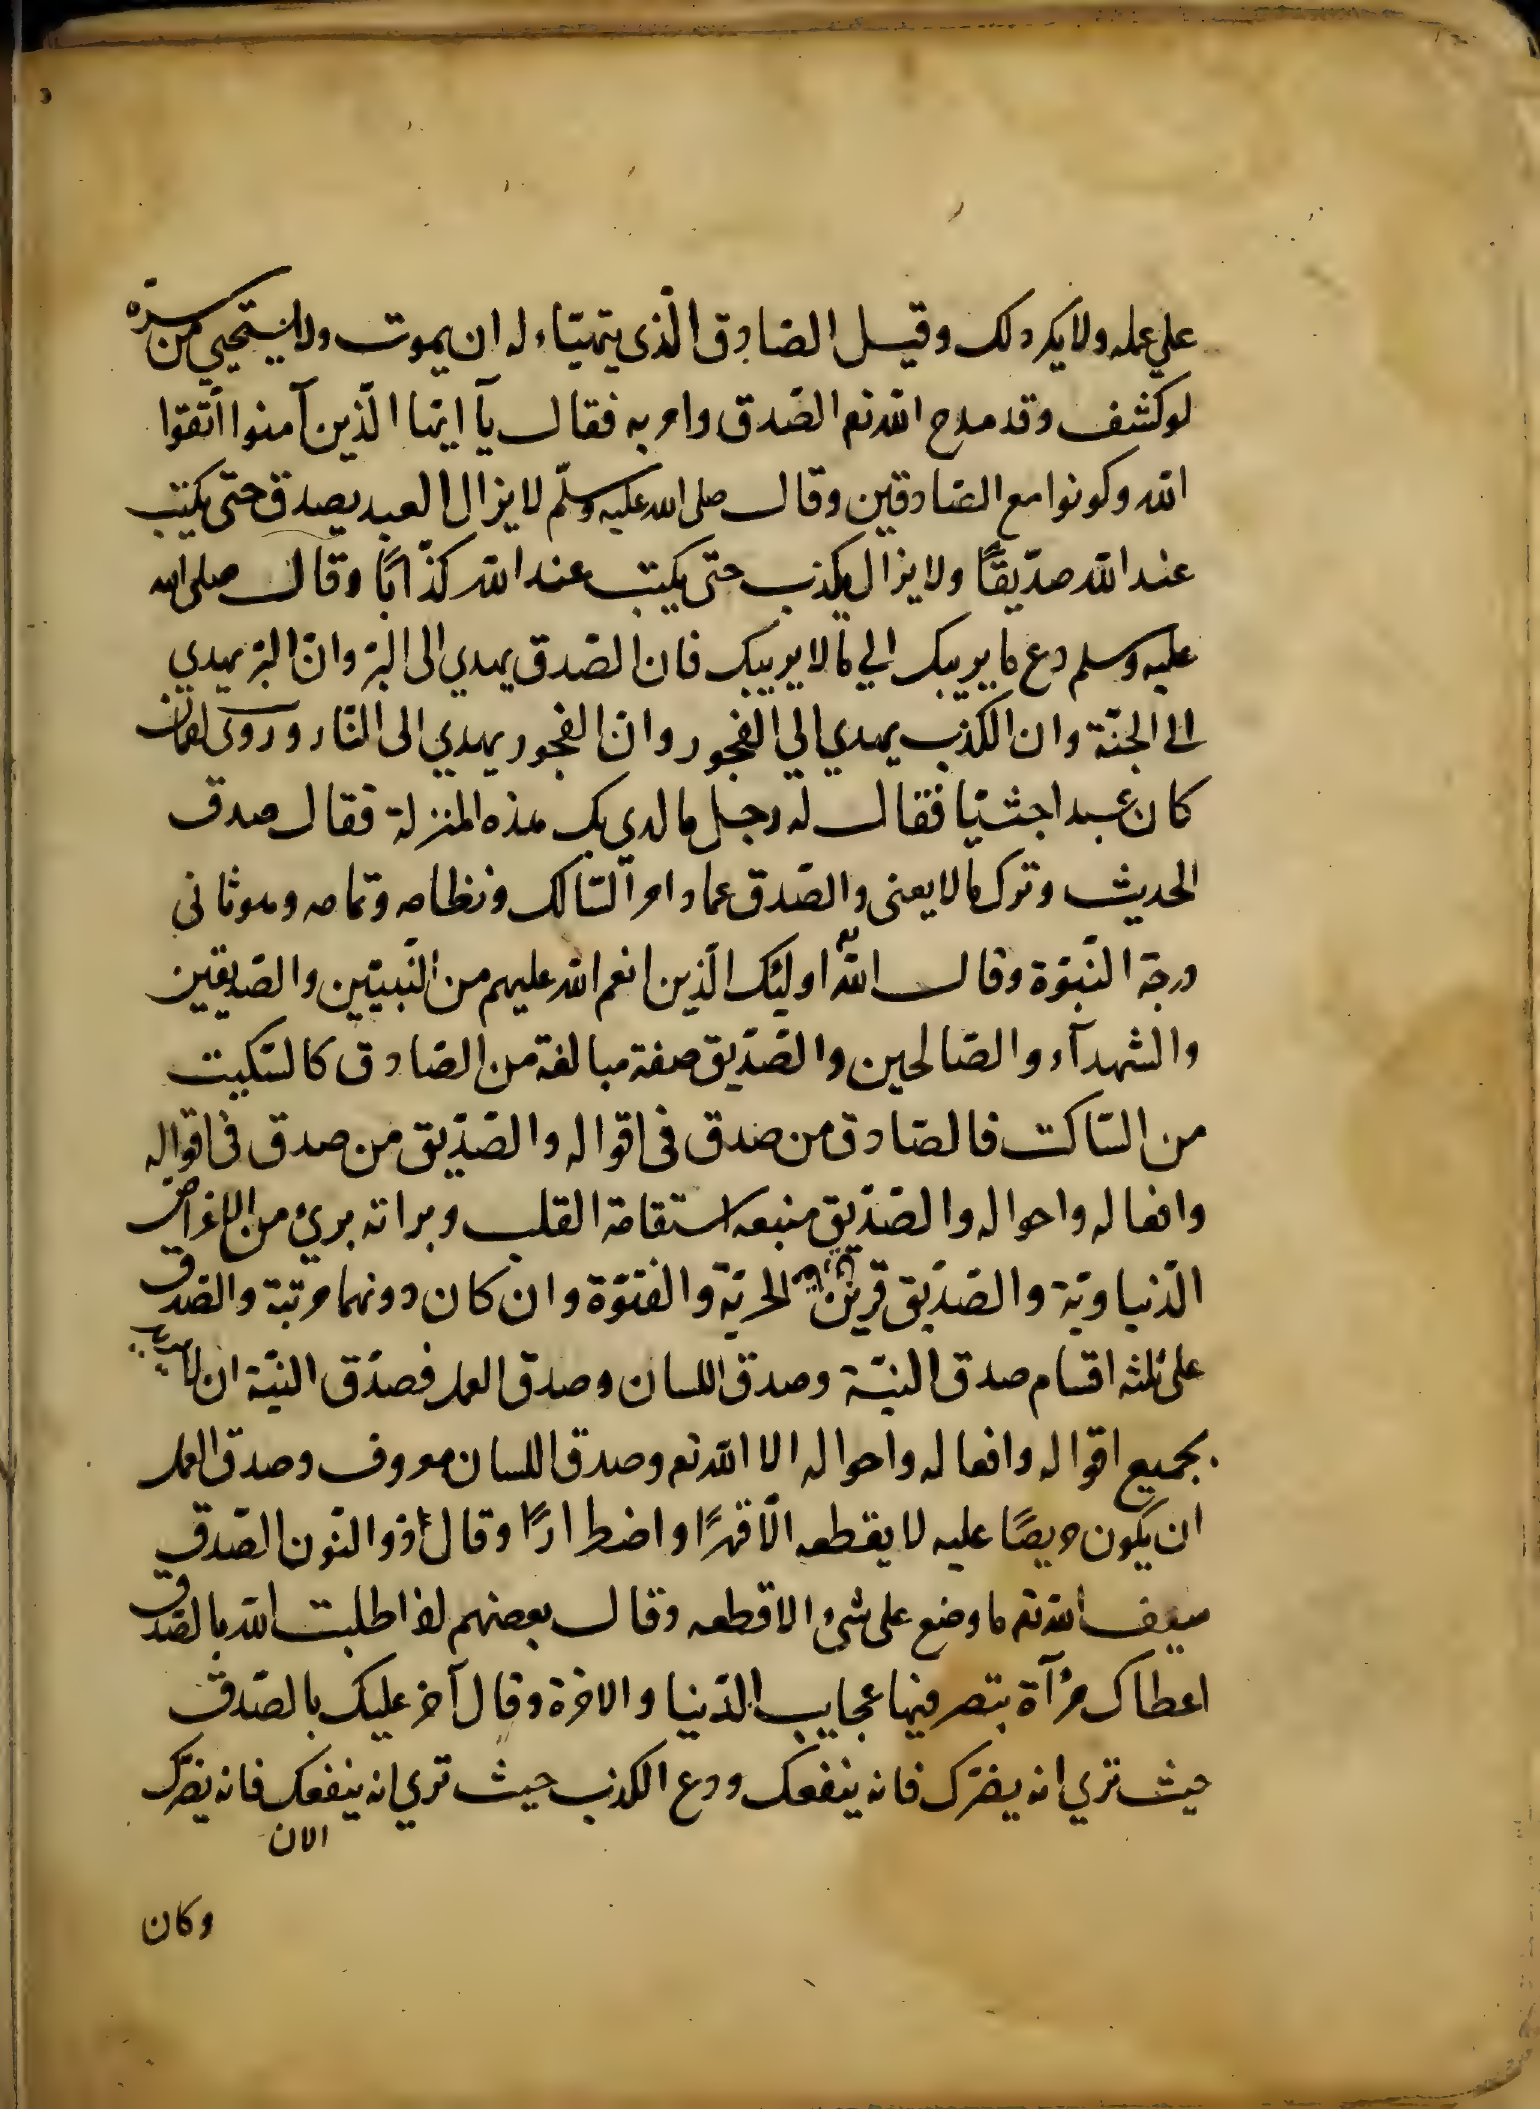 علي عمله ولا يكره لك وقيل الصّادق الّذى يتهيّاء له ان يموت ولا يستحيي من سرّه
لو كشف وقد مدح الله تع الصّدق وامر به فقال يآ ايّها الّذين آمنوا اتّقوا
الله وكونوا مع الصّادقين وقال صلى الله عليه وسلّم لا يزال العبد يصدق حتى يكتب
عند الله صدّيقًا ولا يزال يكذب حتى يكتب عند الله كذّابًا وقال صلى الله
عليه وسلم دع ما يريبك الي ما لا يريبك فان الصّدق يهدي الى البرّ وانّ البرّ يهدي
الے الجنّة وان الكذب يهدي الي الفجور وانّ الفجور يهدي الى النّار وروى لقمان
كان عبدا حبشيّا فقال له رجل ما لدي بك هذه المنزلة فقال صدق
الحديث وترك ما لا يعنى والصّدق عماد امر السّالك ونظامه وتمامه وهو ثانى
درجة النّبوّة وقال الله تع اوليئك الّذين انعم الله عليهم من النّبييّن والصّديقين
والشهدآء والصّالحين والصّدّيق صفة مبالغة من الصّادق كالسّكيت
من السّاكت فالصّادق من صدق فى اقواله والصّدّيق من صدق فى اقواله
وافعاله واحواله والصّدّيق منبعه استقامة القلب وبراته بريء من الاغراض
الدّنياويّة والصّدّيق قرين الحريّة والفتوّة وان كان دونهما مرتبة والصّدق
على ثلثه اقسام صدق النيّة وصدق اللسان وصدق العمل فصدق النيّة ان لا يريد
بجميع اقواله وافعاله واحواله الا الله تع وصدق اللسان معروف وصدق العمل
ان يكون حريصًا عليه لا يقطعه الّا قهرًا واضطرارًا وقال ذو النّون الصّدق
سيف الله تع ما وضع على شيء الا قطعه وقال بعضهم اذا طلبت الله بالصّدق
اعطاك مرآة بتصر فيها عجايب الدّنيا والاخرة وقال آخر عليك بالصّدق
حيث تري انه يضرّك فانه ينفعك ودع الكذب حيث تري انه ينفعك فانه يضرّك
الان
وكان